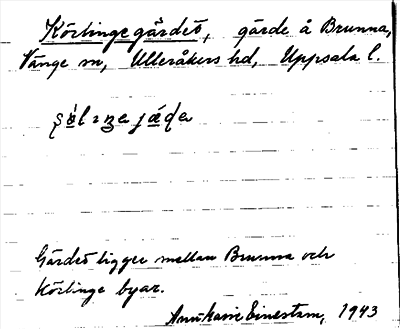 Körlinge gärdet, gärde å Brunna,
Vänge sn, Ulleråkers hd, Uppsala l.
Gärdet ligger mellan Brunna och
Körlinge byar.
Einestam, 1943